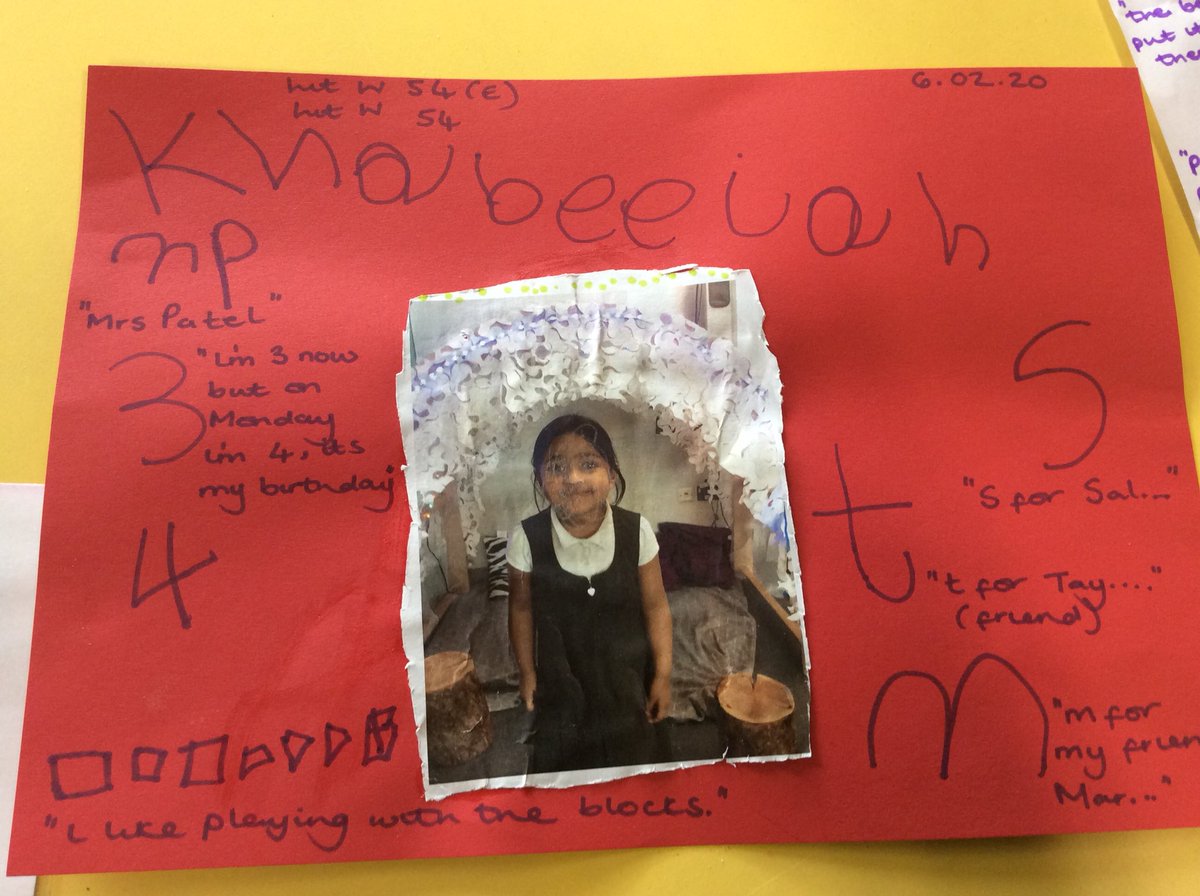 hit W 54 (E)
hit W 54
6.02.20
Khabeeiah
mp
"Mrs Patel"
3
"I'm 3 now
but on
Monday
I'm 4, its
my birthday
4
"I like playing with the blocks."
S
"S for Sal..."
t
"t for Tay...."
(friend)
m
"m for
my frien
Mar..."
"the
put